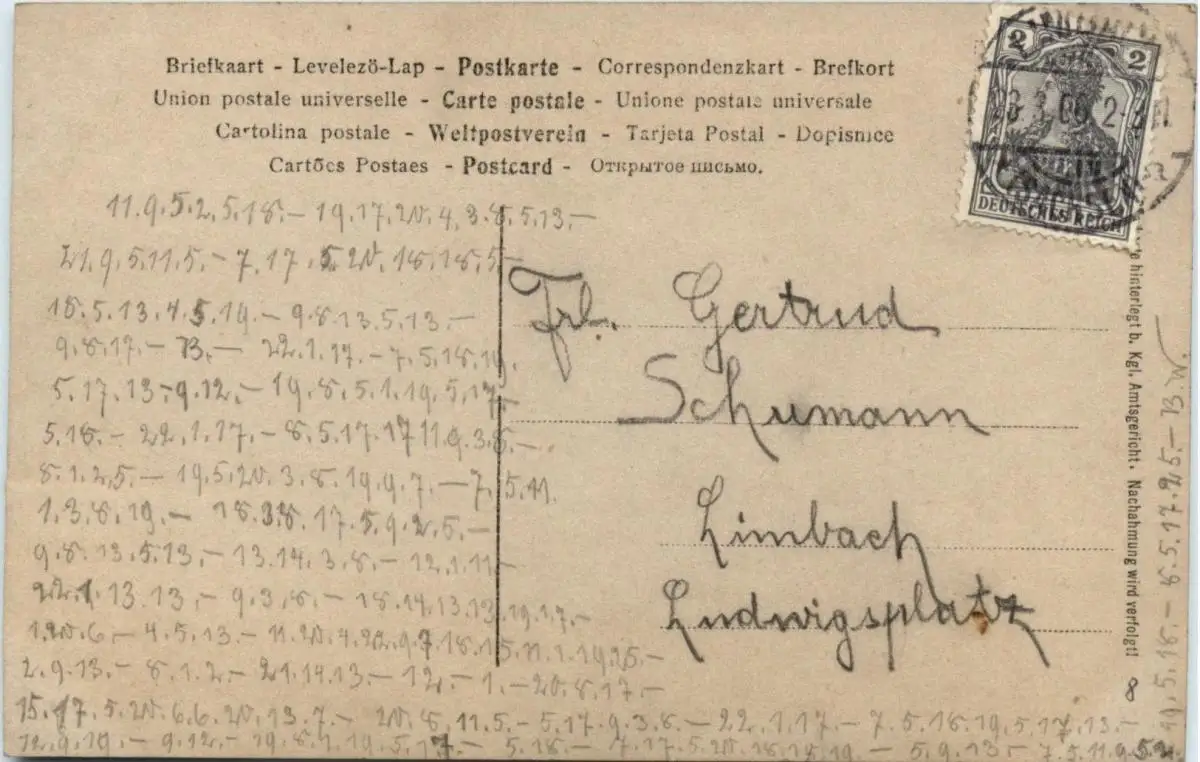 Briefkaart - Levelezö-Lap - Postkarte - Correspondenzkart - Brefkort
Union postale universelle - Carte postale - Unione postale universale
Cartolina postale - Weltpostverein - Tarjeta Postal - Dopisnice
Cartões Postaes - Postcard - Открытое письмо.
2 2
DEUTSCHES REICH
11.9.5.2.5.18.— 19.17.20.4.3.8.5.13.—
21.9.5.11.5.— 7.17.5.20.18.18.5—
18.5.13.4.5.19.— 9.8.13.5.13.—
9.8.17.— 13.— 22.1.17.— 7.5.18.19.
5.17.13—9.12.— 19.8.5.1.19.5.17.—
5.18.— 22.1.17.— 8.5.17.17.9.3.8.—.
8.1.2.5.— 19.5.20.3.8.19.9.7.— 7.5.11.
1.3.8.19.— 18.3.8.17.5.9.2.5.—
9.8.13.5.13.— 13.14.3.8.— 12.1.11—
22.1.13.13.— 9.3.8.— 18.14.13.13.19.1.7.—
1.20.6.— 4.5.13.— 11.20.4.22.9.7.18.15.11.1.19.25.—
2.9.13.— 8.1.2.— 21.14.13.— 12.— 1.—20.8.17.—
15.17.5.20.6.6.20.13.7.— 20.8.11.5.— 5.17.9.3.8.— 22.1.17.— 7.5.18.19.5.17.13.—
12.9.19.— 9.12.— 19.8.1.19.5.17.— 5.18.— 7.17.5.20.18.18.19.— 5.9.13.— 7.5.11.9.5.2.
19.5.18.— 8.5.17.25.— B.W.
Frl. Gertrud
Schumann
Limbach
Ludwigsplatz
hinterlegt b. Kgl. Amtsgericht. Nachahmung wird verfolgt!
8